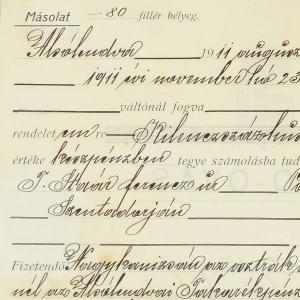 Másolat — 80 fillér bélyeg.
Alsólendva 1911 augusz
1911 évi november hó 23
váltónál fogva
rendelet em re Kilenczszázhu
értéke készpénzben tegye számolásba tud
T. Haár Ferencz úr
Szentadorján
Fizetendő Nagykanizsán az osztrák
nél az Alsólendvai Takarékpénz